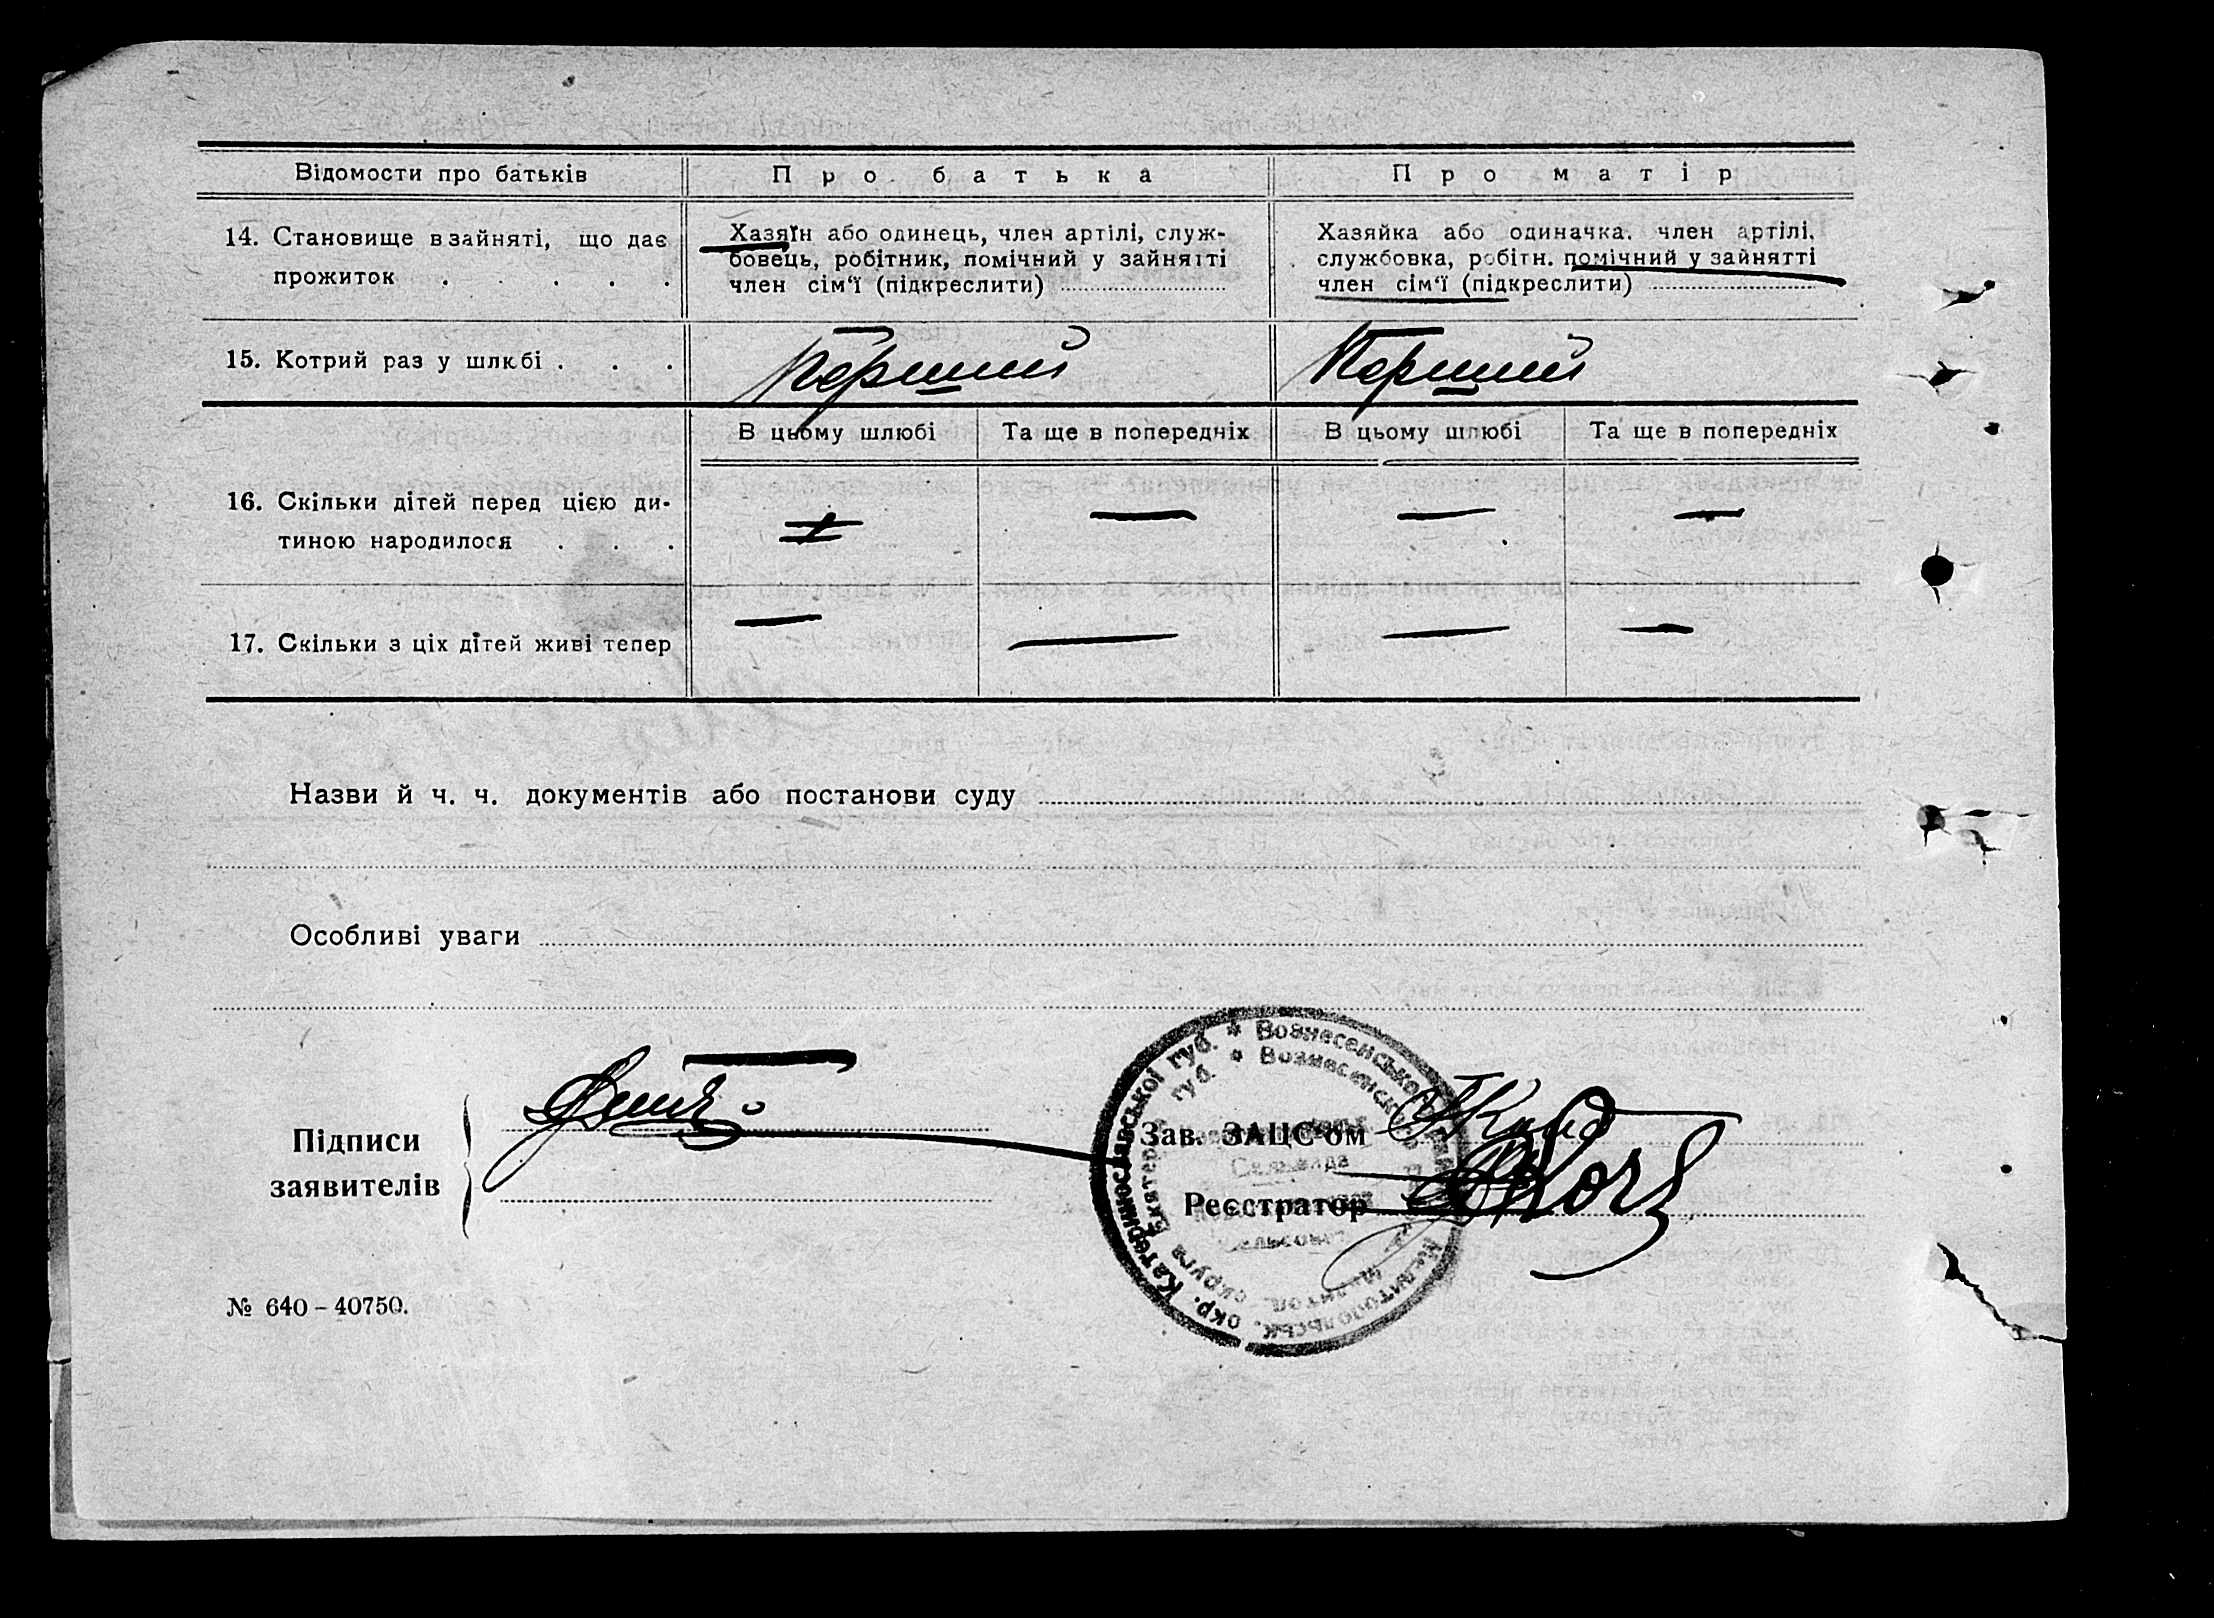 Відомости про батьків
Про батька
Про матір
14. Становище в зайняті, що дає
прожиток . . . . .
Хазяїн або одинець, член артілі, служ-
бовець, робітник, помічний у зайнятті
член сім'ї (підкреслити)
Хазяйка або одиначка, член артілі,
службовка, робітн. помічний у зайнятті
член сім'ї (підкреслити)
15. Котрий раз у шлюбі . . .
Перший
Перший
В цьому шлюбі
Та ще в попередніх
В цьому шлюбі
Та ще в попередніх
16. Скільки дітей перед цією ди-
тиною народилося . . .
—
—
—
17. Скільки з ціх дітей живі тепер
—
—
—
—
Назви й ч. ч. документів або постанови суду
Особливі уваги
Підписи
заявителів
Зав. ЗАЦС'ом
Реєстратор
окр. Катеринославської губ. * Вознесенської
Мелитопольськ.
округа Екатер. губ. * Вознесенск
Сельрада
№ 640 – 40750.